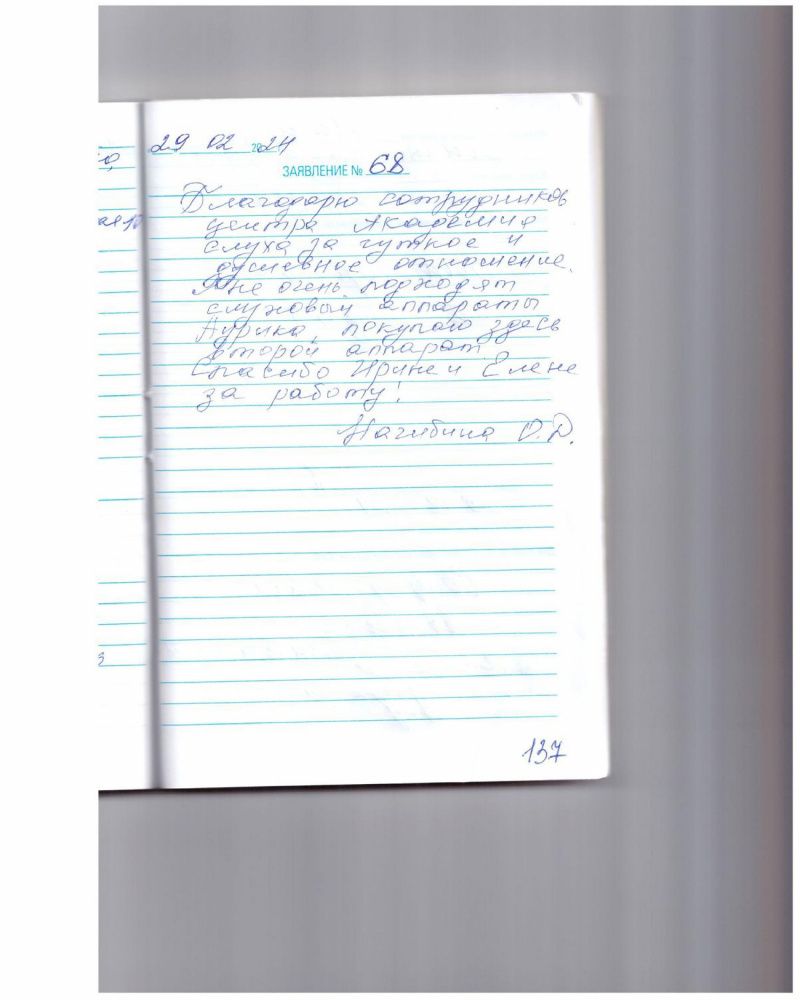 29 02 2024
ЗАЯВЛЕНИЕ № 68
Благодарю сотрудников
центра Академия
слуха за чуткое и
душевное отношение.
Мне очень подходят
слуховый аппараты
Аурика, покупаю здесь
второй аппарат
Спасибо Ирине и Елене
за работу!
Нагибина О.Д.
137